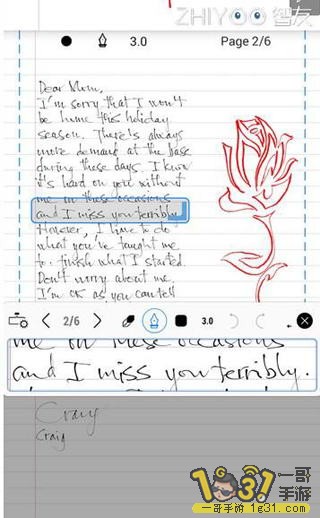 ZHIYOO 智友
3.0
Page 2/6
Dear Mum,
I'm sorry that I won't
be home this holiday
season. There's always
more demand at the base
during these days. I know
it's hard on you without
me on these occasions
and I miss you terribly.
However, I have to do
what you've taught me
to: finish what I started.
Don't worry about me,
I'm OK as you can tell
2/6
3.0
me on these occasions
and I miss you terribly.
Craig
Craig
1g31 一哥手游
一哥手游 www.1g31.com